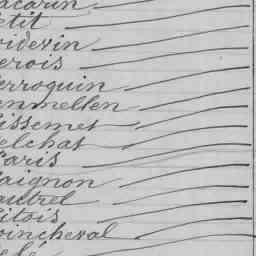 acarin
etit
oiderin
erois
erroquin
enmellen
issemet
elchat
aris
aignon
autrel
itois
oincheval
elé